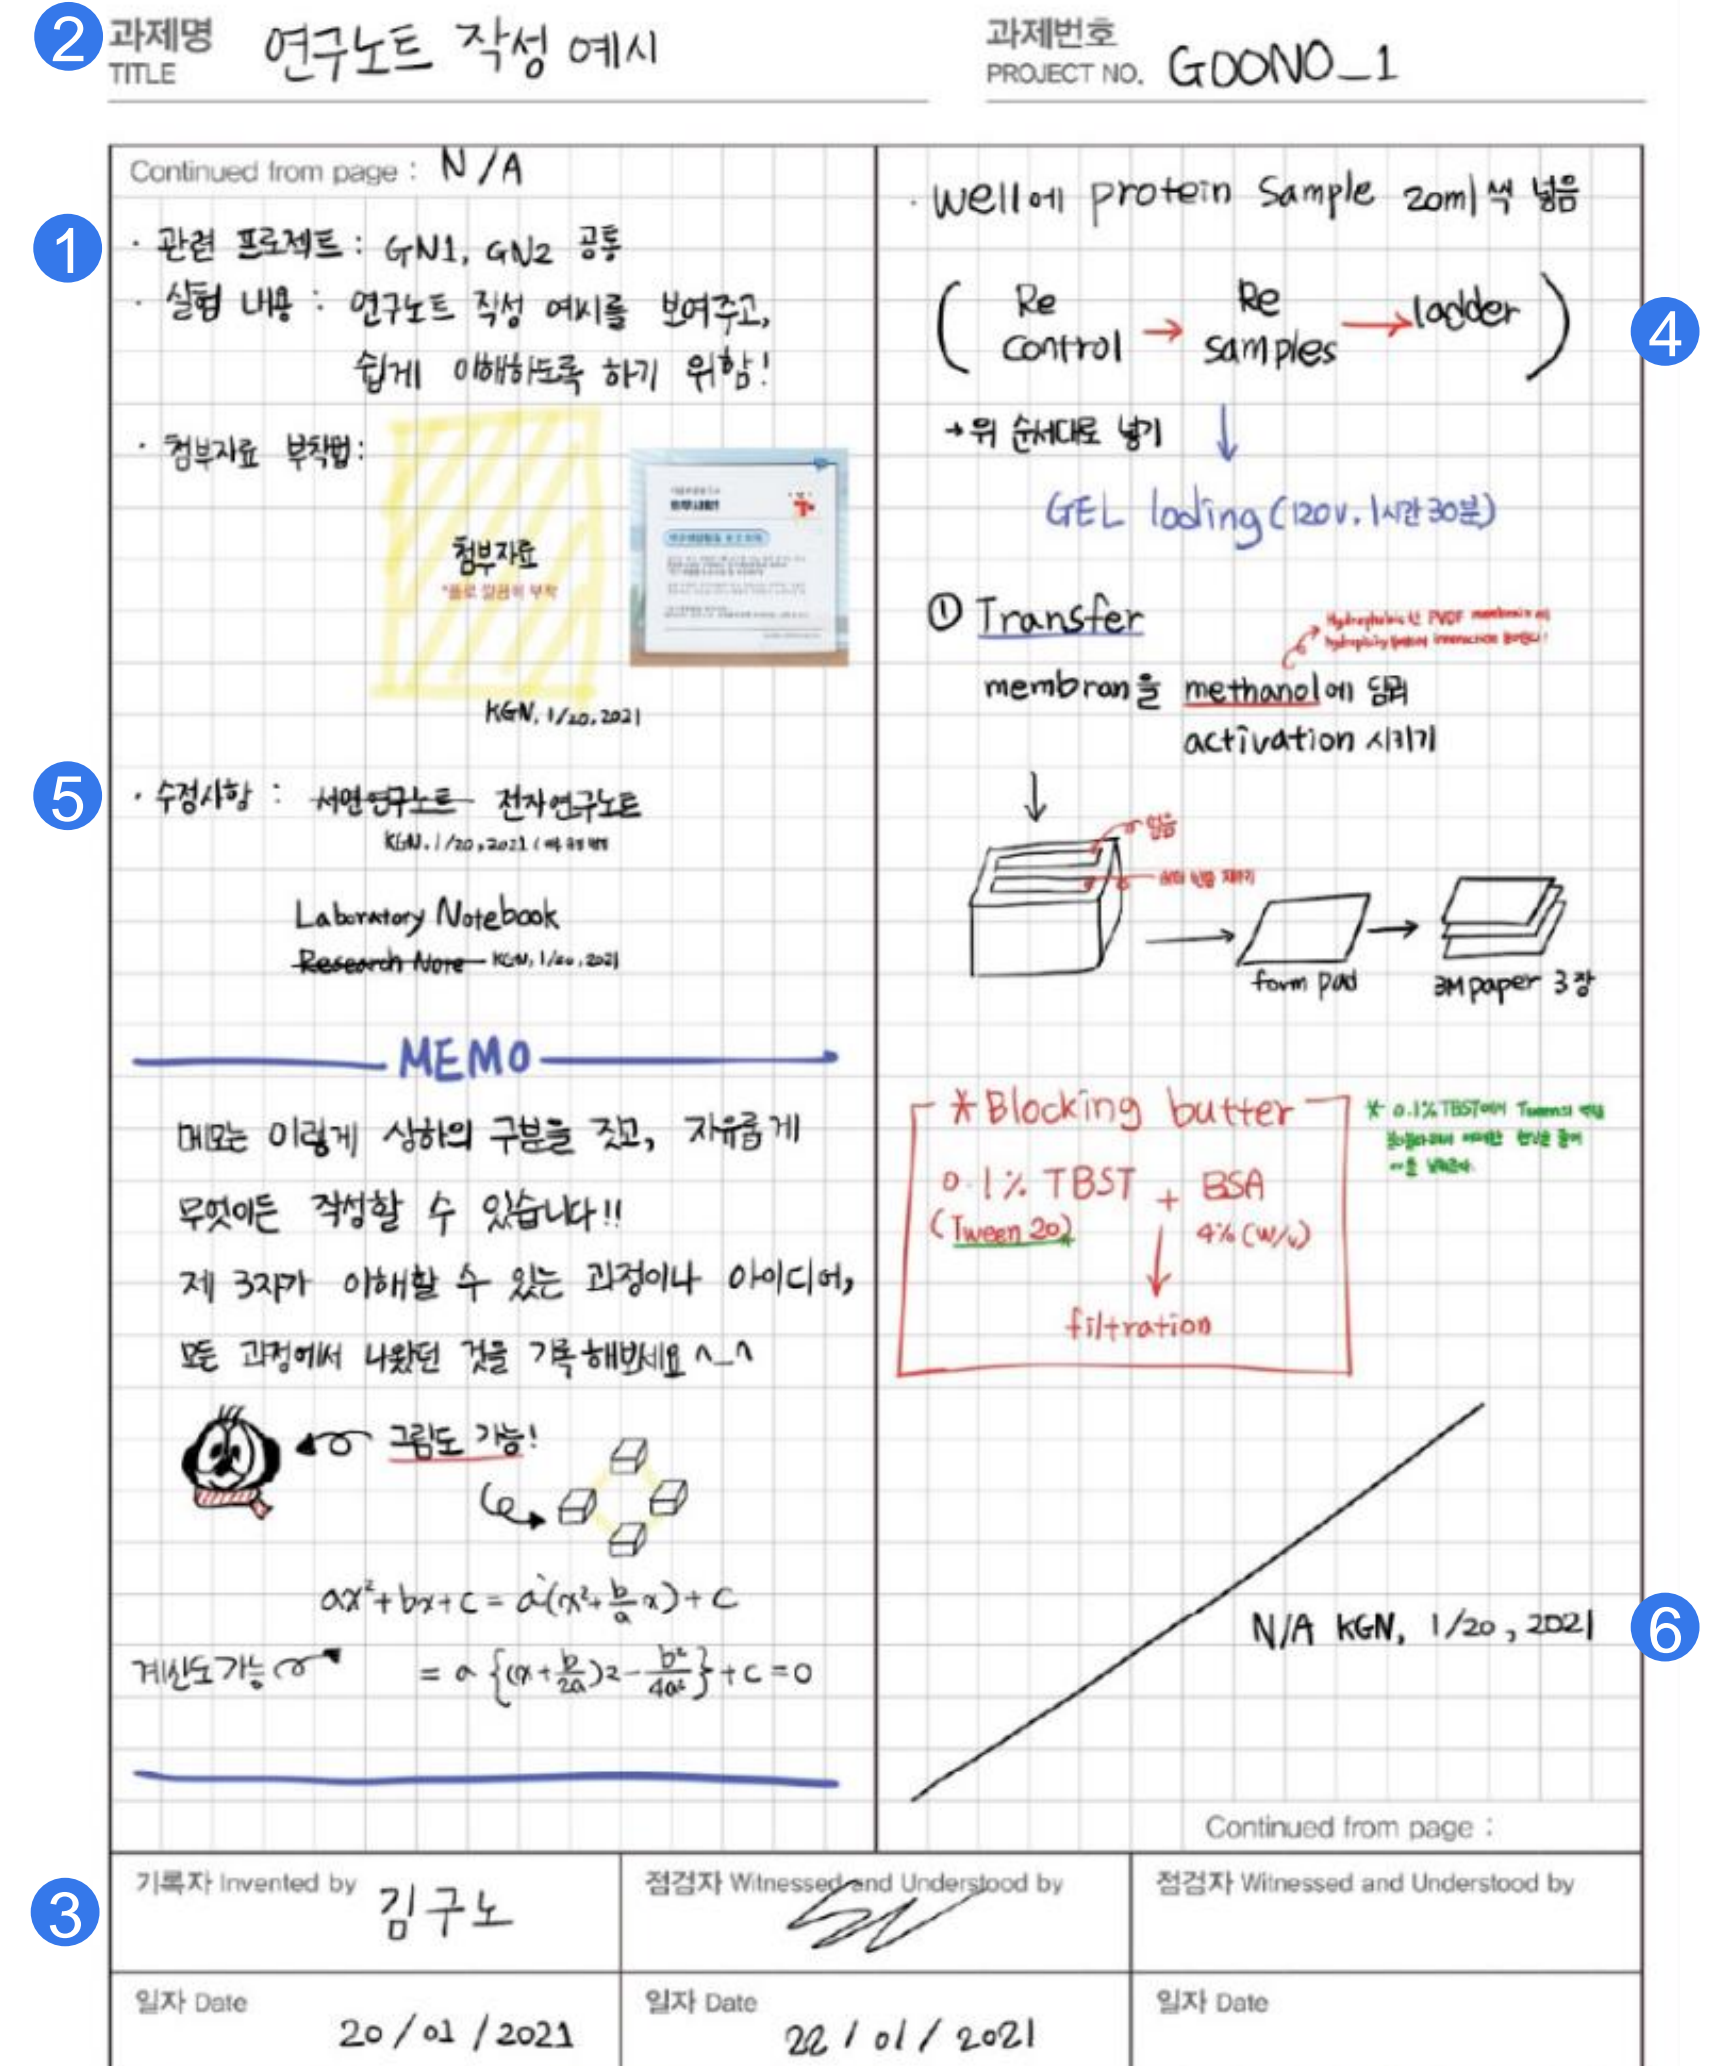 2
과제명
TITLE
연구노트 작성 예시
과제번호
PROJECT NO.
GOONO_1
Continued from page : N/A
1
· 관련 프로젝트 : GN1, GN2 공통
· 실험 내용 : 연구노트 작성 예시를 보여주고,
쉽게 이해하도록 하기 위함!
· 첨부자료 부착법:
첨부자료
*풀로 깔끔히 부착
KGN, 1/20,2021
5
· 수정사항 : 서면연구노트 전자연구노트
KGN, 1/20,2021
Laboratory Notebook
Research Note KGN, 1/20,2021
MEMO
메모는 이렇게 상하의 구분을 짓고, 자유롭게
무엇이든 작성할 수 있습니다!!
제 3자가 이해할 수 있는 과정이나 아이디어,
모든 과정에서 나왔던 것을 기록해보세요 ^_^
그림도 가능!
ax²+bx+c = a(x²+b/a x)+c
계산도가능
= a {(x+b/2a)2-b²/4a²}+c=0
· well에 protein Sample 20ml 씩 넣음
4
( Re Control → Re samples → ladder )
→ 위 순서대로 넣기
GEL loding (120V. 1시간 30분)
① Transfer
Hydrophobic한 PVDF membrane
membran을 methanol에 담궈
activation 시키기
얼음
form pad
3M paper 3장
* Blocking butter
0.1% TBST + BSA
(Tween 20) 4% (w/v)
filtration
* 0.1% TBST에서
6
N/A KGN, 1/20, 2021
Continued from page :
3
기록자 Invented by 김구노
점검자 Witnessed and Understood by
점검자 Witnessed and Understood by
일자 Date 20/01/2021
일자 Date 22/01/2021
일자 Date